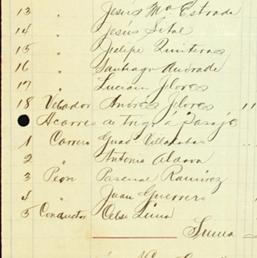 13 " Jesús Ma Estrada
14 " Jesús Sital
15 " Felipe Quinteros
16 " Santiago Andrade
17 " Lucian Flores
18 Velador Andrés Flores
Acarreo de Trigo á Sasajo
1 Carrero Guad. Villalobos
2 " Antonio Aldava
3 Peon Pascual Ramírez
4 " Juan Guerrero
5 Conductor Celso Luna
Suma